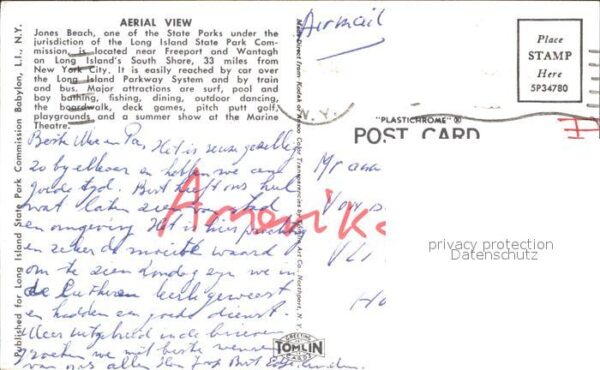 AERIAL VIEW
Jones Beach, one of the State Parks under the
jurisdiction of the Long Island State Park Com-
mission, is located near Freeport and Wantagh
on Long Island's South Shore, 33 miles from
New York City. It is easily reached by car over
the Long Island Parkway System and by train
and bus. Major attractions are surf, pool and
bay bathing, fishing, dining, outdoor dancing,
the boardwalk, deck games, pitch putt golf,
playgrounds and a summer show at the Marine
Theatre.
Published for Long Island State Park Commission Babylon, L.I., N.Y.
Airmail
N.Y.
Place
STAMP
Here
5P34780
"PLASTICHROME"®
POST CARD
Made Direct from Kodak or Ansco Color Transparencies by Tomlin Art Co., Northport, N.Y.
Beste en Pa, Het is gezellig
zo bij elkaar en hebben we een
goede tijd. Bert heeft ons heel
wat laten zien van stad
en omgeving Het is hier prachtig
en zeker de moeite waard
om te zien Zondag zijn we in
de Lutheran kerk geweest
en hadden een goede dienst.
Meer uitgebreid in de brieven
groeten we met beste wensen
van ons allen Bert
Amerika
Mr
V
VLI
H
privacy protection
Datenschutz
GREETING
TOMLIN
CARDS